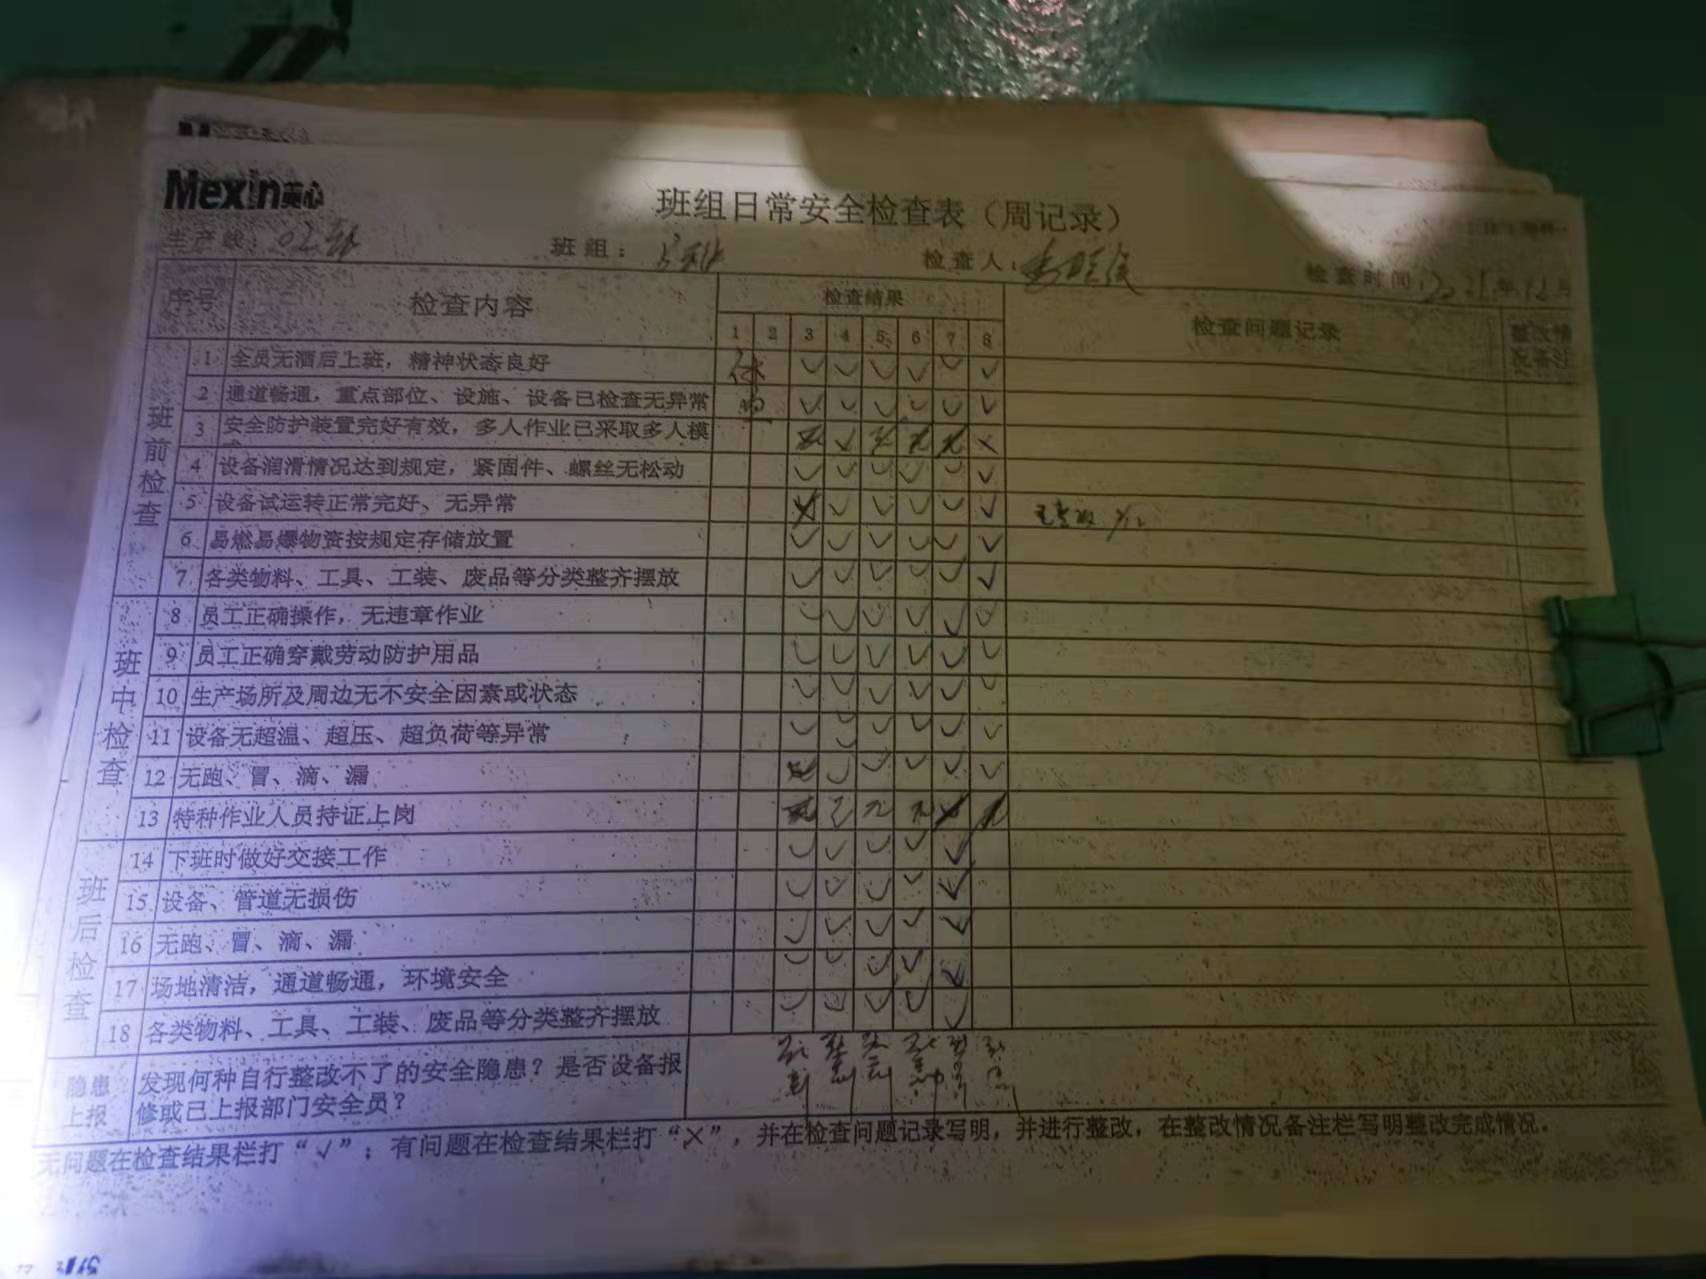 Mexin美心
班组日常安全检查表（周记录）
生产线： 班组： 检查人： 检查时间：2021年12月
序号 检查内容 检查结果 检查问题记录 整改情况备注
1 2 3 4 5 6 7 8
班前检查
1 全员无酒后上班，精神状态良好 休 √ √ √ √ √ √
2 通道畅通，重点部位、设施、设备已检查无异常 √ √ √ √ √ √
3 安全防护装置完好有效，多人作业已采取多人模
4 设备润滑情况达到规定，紧固件、螺丝无松动 √ √ √ √ √ √
5 设备试运转正常完好，无异常 √ √ √ √ √
6 易燃易爆物资按规定存储放置 √ √ √ √ √ √
7 各类物料、工具、工装、废品等分类整齐摆放 √ √ √ √ √ √
班中检查
8 员工正确操作，无违章作业 √ √ √ √ √ √
9 员工正确穿戴劳动防护用品 √ √ √ √ √ √
10 生产场所及周边无不安全因素或状态 √ √ √ √ √ √
11 设备无超温、超压、超负荷等异常 √ √ √ √ √ √
12 无跑、冒、滴、漏 √ √ √ √ √
13 特种作业人员持证上岗 无
班后检查
14 下班时做好交接工作 √ √ √ √ √
15 设备、管道无损伤 √ √ √ √ √
16 无跑、冒、滴、漏 √ √ √ √ √
17 场地清洁，通道畅通，环境安全 √ √ √ √ √
18 各类物料、工具、工装、废品等分类整齐摆放 √ √ √ √ √
隐患上报 发现何种自行整改不了的安全隐患？是否设备报
修或已上报部门安全员？
无问题在检查结果栏打“√”；有问题在检查结果栏打“×”，并在检查问题记录写明，并进行整改，在整改情况备注栏写明整改完成情况。